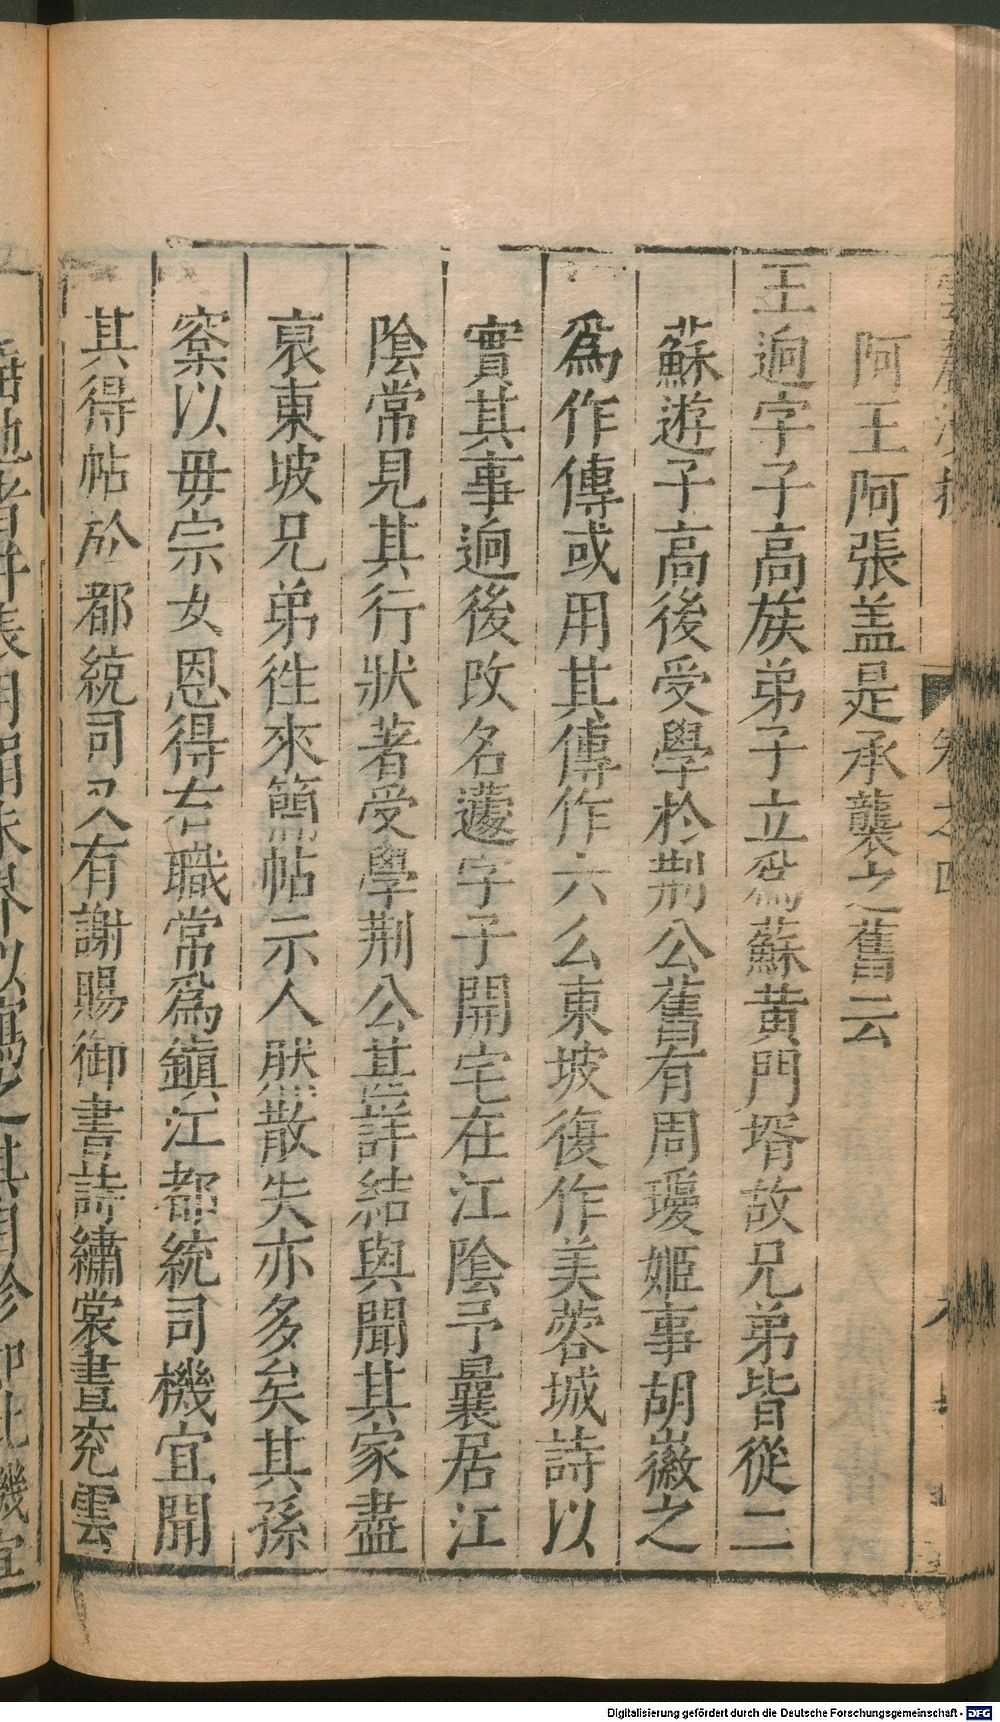 阿王阿張盖是承襲之舊云
王逈字子高族弟子立爲蘇黄門壻故兄弟皆從二
蘇遊子高後受學於荆公舊有周瓊姬事胡徽之
爲作傳或用其傳作六么東坡復作芙蓉城詩以
實其事逈後改名蘧字子開宅在江陰予曩居江
陰常見其行狀著受學荆公甚詳結與聞其家盡
裒東坡兄弟徃來簡帖示人然散失亦多矣其孫
寀以毋宗女恩得右職常爲鎮江都統司機宜聞
其得帖於都統司又有謝賜御書詩繡裳晝兖雲
卷之四
Digitalisierung gefördert durch die Deutsche Forschungsgemeinschaft - DFG